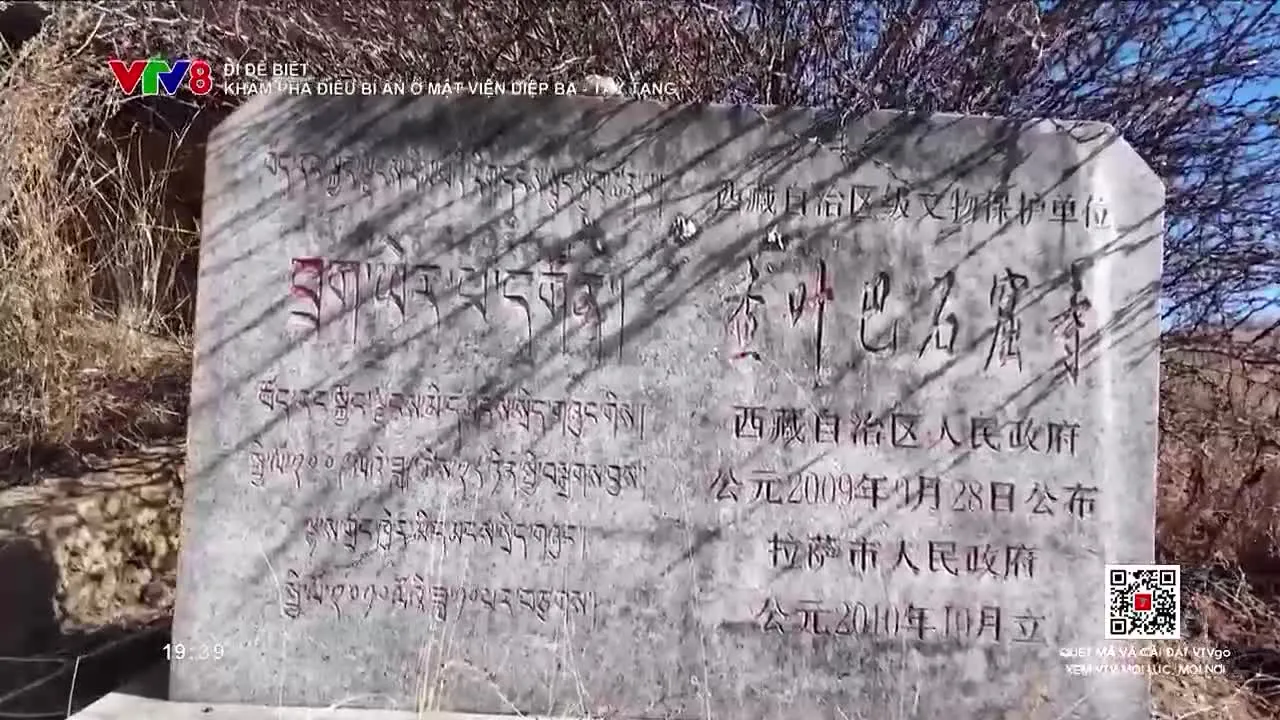 VTV8
ĐI ĐỂ BIẾT
KHÁM PHÁ ĐIỀU BÍ ẨN Ở MẬT VIỆN DIỆP BA - TÂY TẠNG
西藏自治区级文物保护单位
བྲག་ཡེར་པ་དགོན།
查叶巴石窟寺
བོད་རང་སྐྱོང་ལྗོངས་མི་དམངས་སྲིད་གཞུང་གིས།
西藏自治区人民政府
公元2009年9月28日公布
ལྷ་ས་གྲོང་ཁྱེར་མི་དམངས་སྲིད་གཞུང་།
拉萨市人民政府
公元2010年10月立
19:39
QUÉT MÃ VÀ CÀI ĐẶT VTVgo
XEM VTV MỌI LÚC, MỌI NƠI